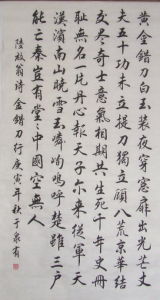 黃金錯刀白玉裝夜穿窗扉出光芒丈
夫五十功未立提刀獨立顧八荒京華結
交盡奇士意氣相期共生死千年史冊
恥無名一片丹心報天子爾來從軍天
漢濱南山曉雪玉嶙峋嗚呼楚雖三户
能亡秦豈有堂〻中國空無人
陸放翁詩金錯刀行庚寅年秋于泉